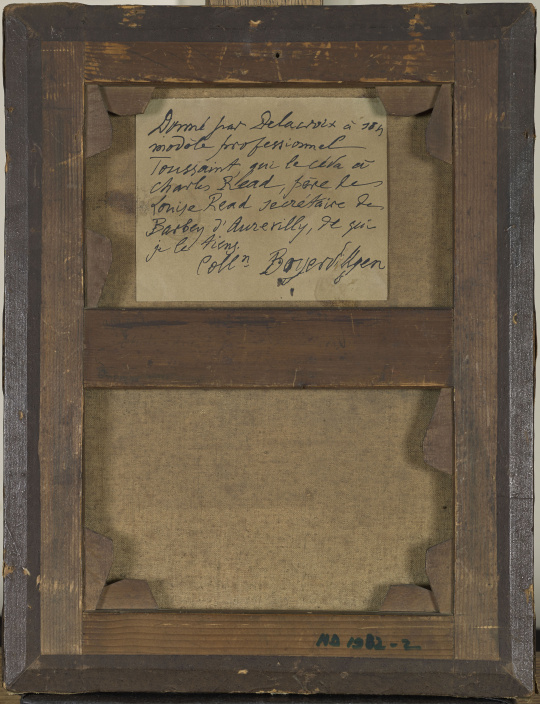 Donné par Delacroix à son
modèle professionnel
Toussaint qui le céda à
Charles Read, père de
Louise Read secrétaire de
Barbey d'Aurevilly, de qui
je le tiens.
Coll.n Boyer d'Agen
MD 1982-2